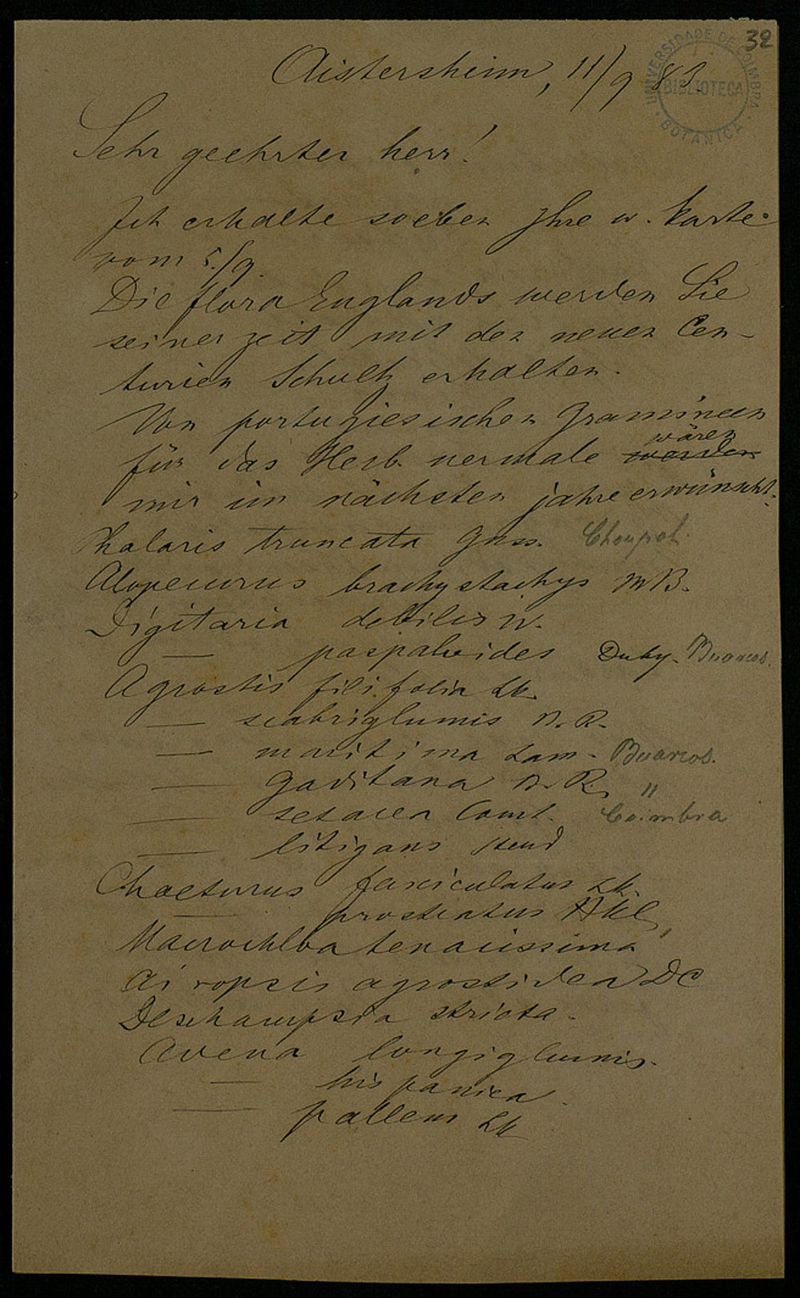 32
UNIVERSIDADE DE COIMBRA
BIBLIOTECA
BOTANICA
Aistersheim, 11/9 83.
Sehr geehrter herr!
Ich erhalte soeben Ihre w. Karte
vom 5./9.
Die flora Englands werden Sie
seiner zeit mit den neuen Cen-
turien Schultz erhalten.
Von portugiesischen Gramineen
wären
für das Herb. normale werden
mir im nächsten jahre erwünscht.
Phalaris truncata Guss.
Alopecurus brachystachys MB.
Digitaria debilis W.
— paspaloides Duby. Buarcos.
Agrostis filifolia Lk.
— scabriglumis B. R.
— maritima Lam. Buarcos.
— gaditana B. R. "
— setacea Curt. Coimbra
— litigans Steud
Chaeturus fasciculatus Lk.
— prostratus
Macrochloa tenacissima
Airopsis agrostidea DC
Deschampsia stricta.
Avena longiglumis.
— hispanica
— pallens Lk